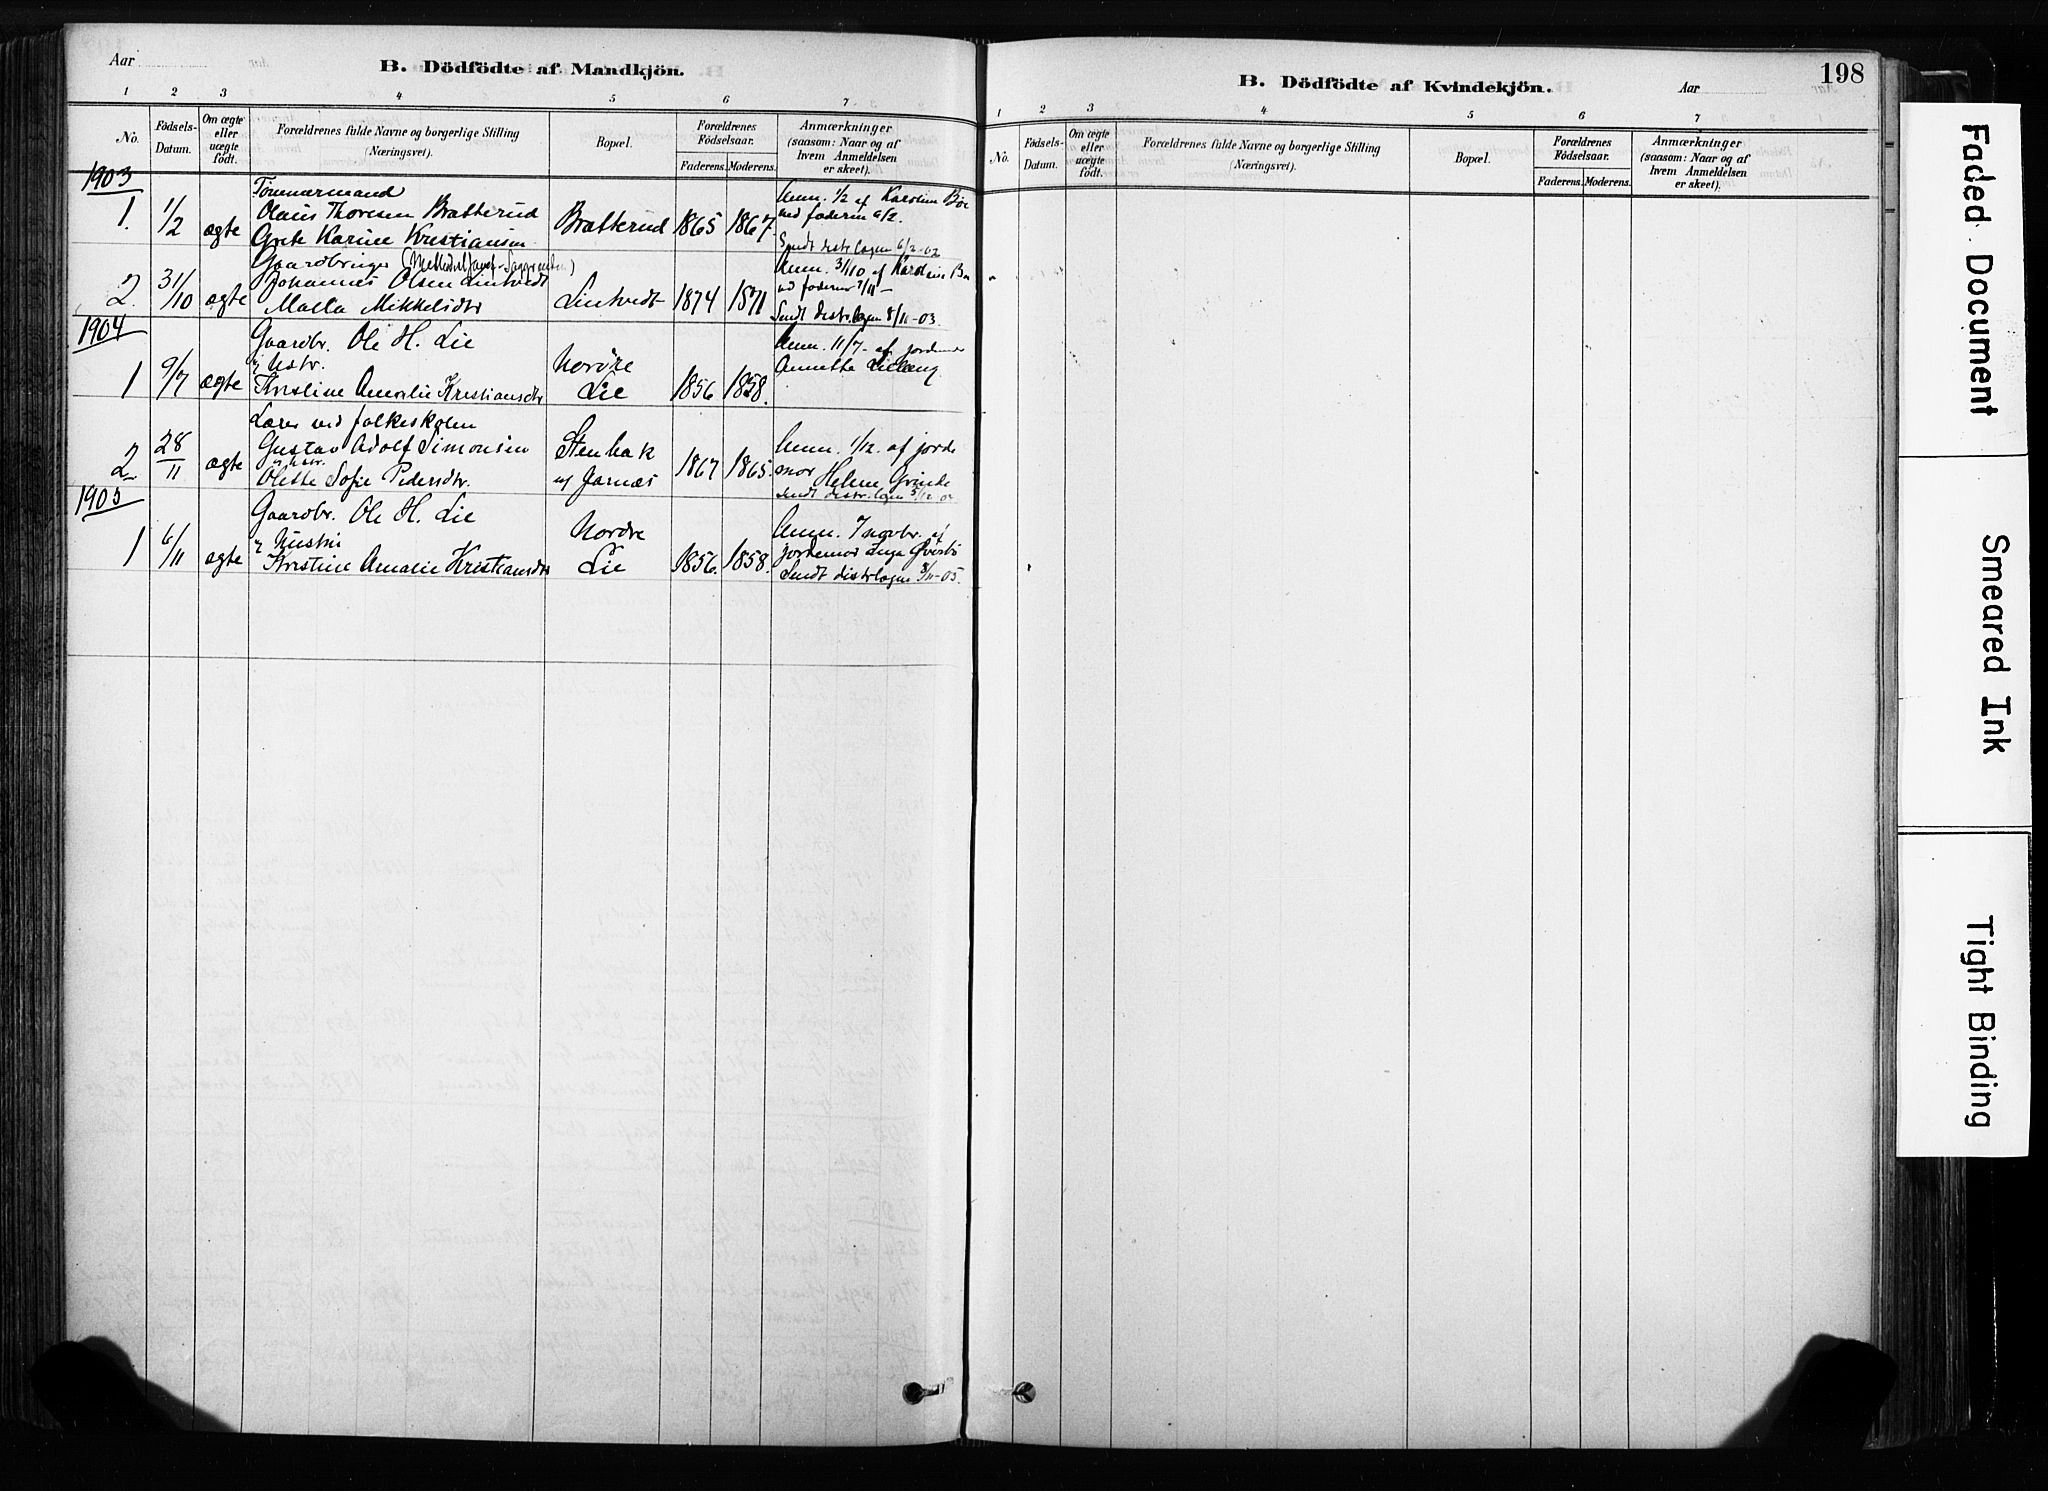 Aar
B. Dödfödte af Mandkjön.
1 2 3 4 5 6 7
No.
Födsels-
Datum.
Om ægte
eller
uægte
födt.
Forældrenes fulde Navne og borgerlige Stilling
(Næringsvei).
Bopæl.
Forældrenes
Födselsaar.
Faderens. Moderens.
Anmærkninger
(saasom: Naar og af
hvem Anmeldelsen
er skeet).
1903
1. 1/2 ægte
Tømmermand
Olaus Thoresen Bratterud
Grete Karine Kristiansen
Bratterud 1865 1867.
Anm. 1/2 af Karoline Bøe
ved faderen 6/2.
Sendt distr.lægen 6/2-02
2. 31/10 ægte
Gaardbruger
Johannes Olsen Lintvedt
Malla Mikkelsdtr
Lintvedt 1874 1871
Anm. 31/10 af Karoline Bø
ved faderen 7/11 -
Sendt distr.lægen 8/11-03.
1904
1 9/7 ægte
Gaardbr. Ole H. Lie
og Hstr.
Kristine Amalie Kristiansdtr
Nordre
Lie 1856 1858.
Anm. 11/7 - af jordem
Annette
2 28/11 ægte
Lærer ved folkeskolen
Gustav Adolf Simonsen
og Hstr.
Olette Sofie Pedersdtr.
Stenbak
1867 1865.
Anm. 1/12. af jorde
mor Helene
Sendt distr.lægen 5/12 04
1905
1 6/11 ægte
Gaardbr. Ole H. Lie
og Hustru
Kristine Amalie Kristiansdtr
Nordre
Lie 1856. 1858.
Anm. 7 novbr. af
jordemor Inga
Sendt distr.lægen 8/11-05.
B. Dödfödte af Kvindekjön.
Aar
198
1 2 3 4 5 6 7
No.
Födsels-
Datum.
Om ægte
eller
uægte
födt.
Forældrenes fulde Navne og borgerlige Stilling
(Næringsvei).
Bopæl.
Forældrenes
Födselsaar.
Faderens. Moderens.
Anmærkninger
(saasom: Naar og af
hvem Anmeldelsen
er skeet).
Faded Document
Smeared Ink
Tight Binding